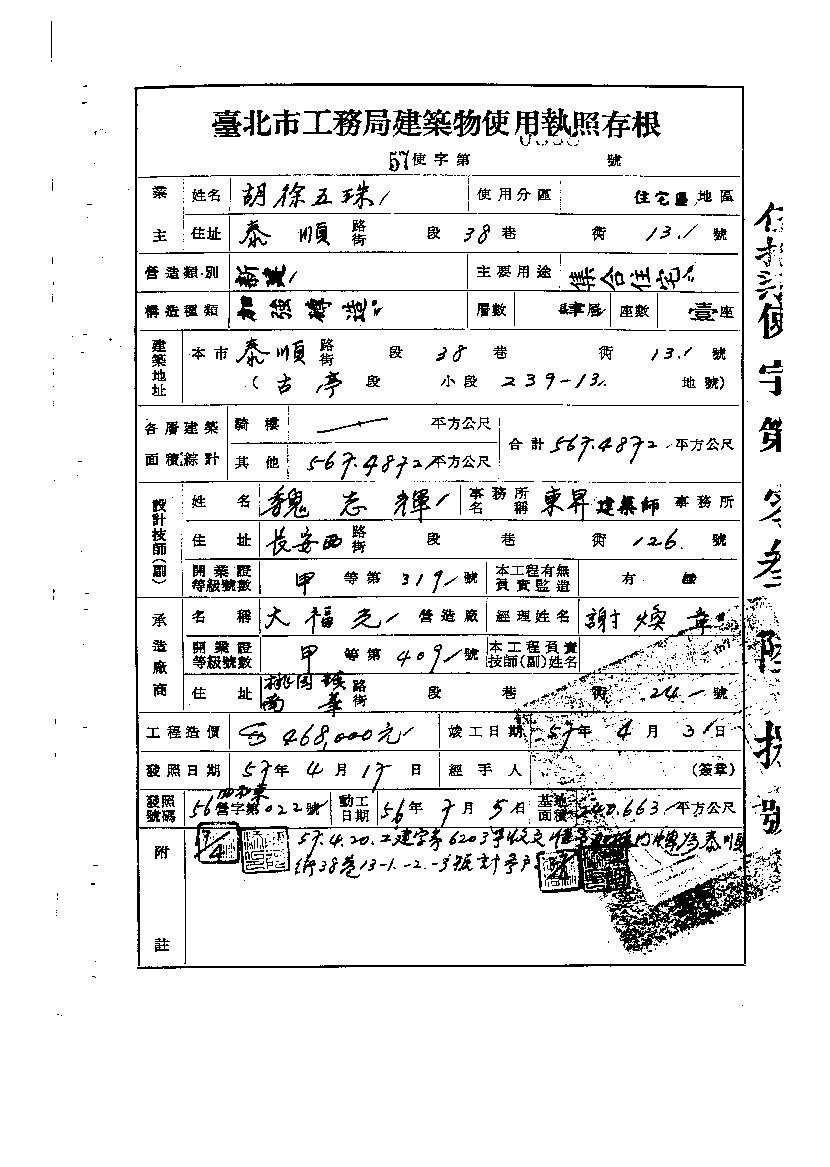 臺北市工務局建築物使用執照存根
57使字第 號
業主 姓名 胡徐五珠 使用分區 住宅區地區
住址 泰順 路街 段 38巷 衖 13.1 號
營造類別 新建 主要用途 集合住宅
構造種類 加強磚造 層數 肆層 座數 壹座
建築地址 本市 泰順 路街 段 38 巷 衖 13.1 號
(古亭段 小段 239-13 地號)
各層建築面積綜計 騎樓 平方公尺 合計 567.4872 平方公尺
其他 567.4872 平方公尺
設計技師(副) 姓名 魏志輝 事務所名稱 東昇建築師事務所
住址 長安西 路街 段 巷 衖 126 號
開業證等級號數 甲 等第 319 號 本工程有無員實監造 有
承造廠商 名稱 大福 營造廠 經理姓名 謝煥章
開業證等級號數 甲 等第 409 號 本工程負責技師(副)姓名
住址 桃園鎮南華 路街 段 巷 衖 24 號
工程造價 468,000元 竣工日期 57年 4月 31日
發照日期 57年 4月 17日 經手人 (簽章)
發照號碼 56 營字第022號 動工日期 56年 7月 5日 基地面積 240.663 平方公尺
附註 57.4.20.工建字第6203號收文 泰順
街38巷13-1.-2.-3號
使字第零叁陸 號